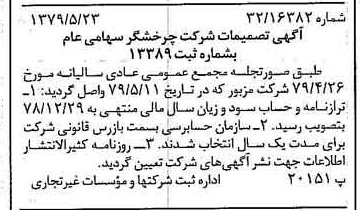 شماره ۳۲/۱۶۳۸۲ ۱۳۷۹/۵/۲۳
آگهی تصمیمات شرکت چرخشگر سهامی عام
بشماره ثبت ۱۳۳۸۹
طبق صورتجلسه مجمع عمومی عادی سالیانه مورخ
۷۹/۴/۲۶ شرکت مزبور که در تاریخ ۷۹/۵/۱۱ واصل گردید: ۱ـ
ترازنامه و حساب سود و زیان سال مالی منتهی به ۷۸/۱۲/۲۹
بتصویب رسید. ۲ـ سازمان حسابرسی بسمت بازرس قانونی شرکت
برای مدت یک سال انتخاب شدند. ۳ـ روزنامه کثیرالانتشار
اطلاعات جهت نشر آگهی‌های شرکت تعیین گردید.
پ ۲۰۱۵۱ اداره ثبت شرکتها و مؤسسات غیرتجاری